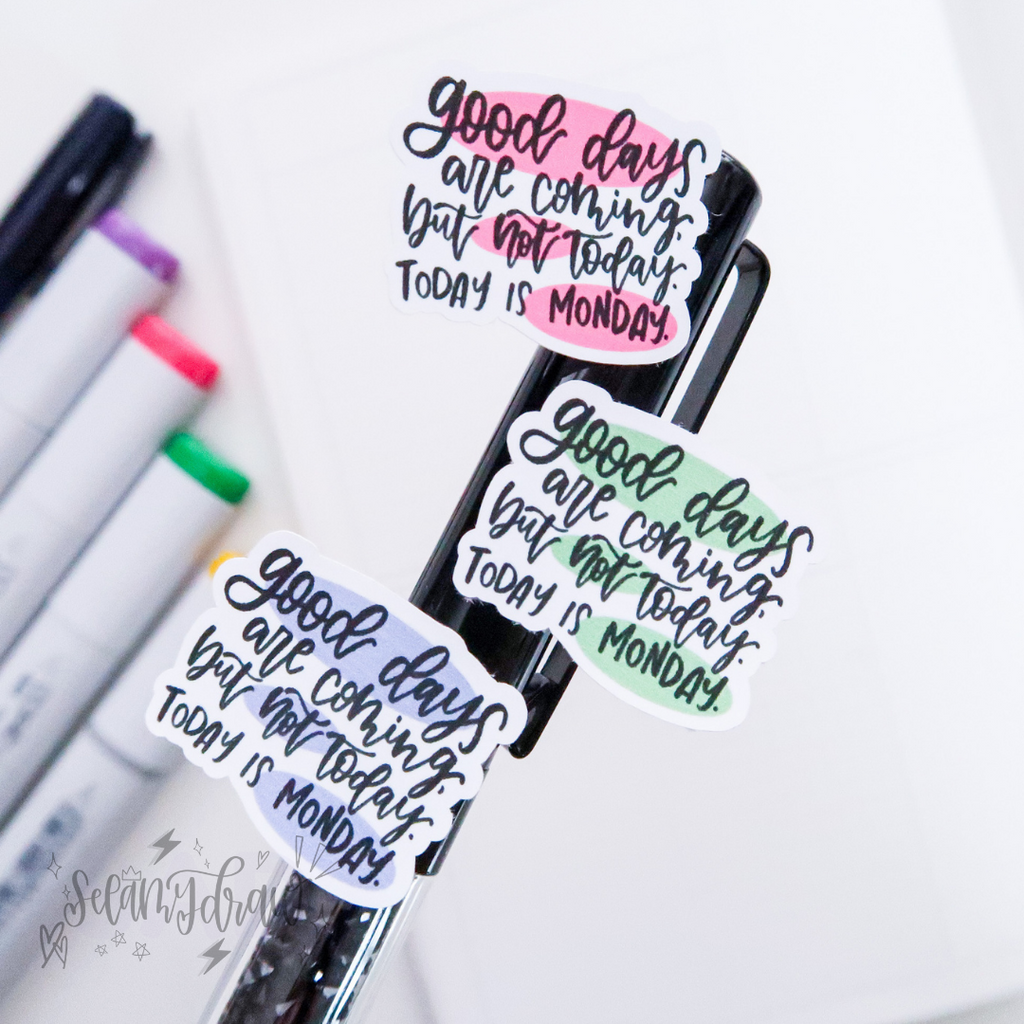 good days
are coming.
but not today.
TODAY IS MONDAY.
good days
are coming.
but not today.
TODAY IS MONDAY.
good days
are coming.
but not today.
TODAY IS MONDAY.
Selamydraws